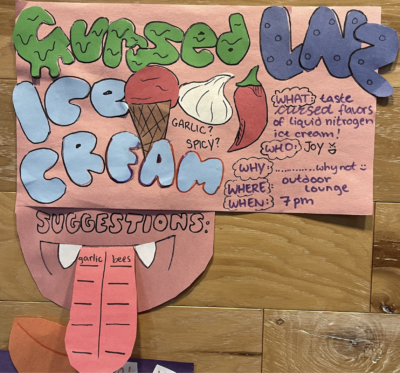 Cursed LN2
ICE
CREAM
GARLIC?
SPICY?
WHAT: taste
cursed flavors
of liquid nitrogen
ice cream!
WHO: Joy
WHY: ............why not :)
WHERE: outdoor
lounge
WHEN: 7pm
SUGGESTIONS:
garlic bees